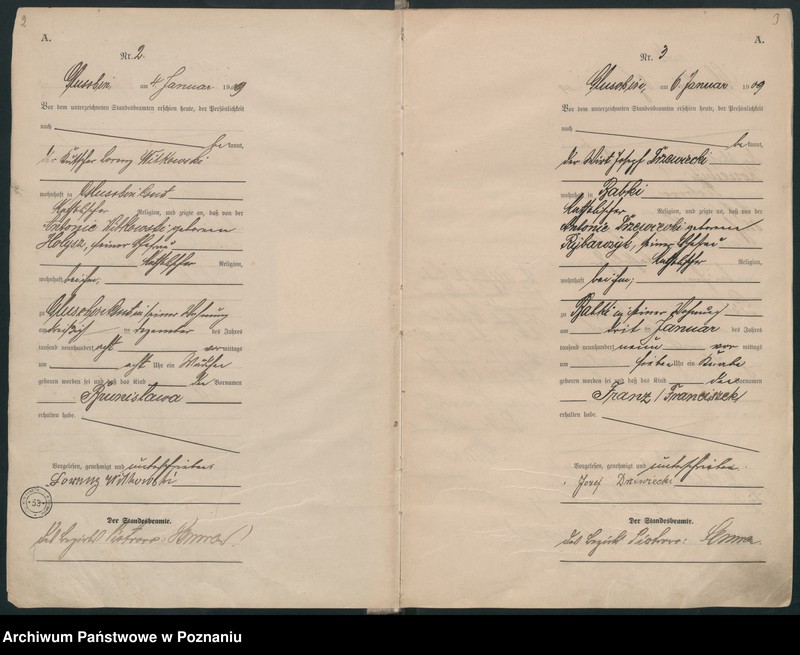 2
A.
Nr. 2.
am 4 Januar 1909
Vor dem unterzeichneten Standesbeamten erschien heute, der Persönlichkeit
nach
be kannt,
der Kutscher Lorenz Witkowski
wohnhaft in
katholischer Religion, und zeigte an, daß von der
Antonie Witkowski geborenen
seiner Ehefrau
katholischer Religion,
wohnhaft bei ihm,
zu in seiner Wohnung
am Dezember des Jahres
tausend neunhundert acht vor mittags
um acht Uhr ein Mädchen
geboren worden sei und daß das Kind den Vornamen
Bronislawa
erhalten habe.
Vorgelesen, genehmigt und unterschrieben
Lorenz Witkowski
53
Der Standesbeamte.
des Bezirks Piotrowo.
3
A.
Nr. 3
am 6 Januar 1909
Vor dem unterzeichneten Standesbeamten erschien heute, der Persönlichkeit
nach
be kannt,
der Wirt Joseph Drzewiecki
wohnhaft in Babki
katholischer Religion, und zeigte an, daß von der
Antonie Drzewiecki geborenen
Rybarczyk, seiner Ehefrau
katholischer Religion,
wohnhaft bei ihm;
zu Babki in seiner Wohnung
am drit Januar des Jahres
tausend neunhundert neun vor mittags
um sieben Uhr ein Knabe
geboren worden sei und daß das Kind den Vornamen
Franz /Franciszek/
erhalten habe.
Vorgelesen, genehmigt und unterschrieben
Jozef Drzewiecki
Der Standesbeamte.
des Bezirks Piotrowo:
Archiwum Państwowe w Poznaniu